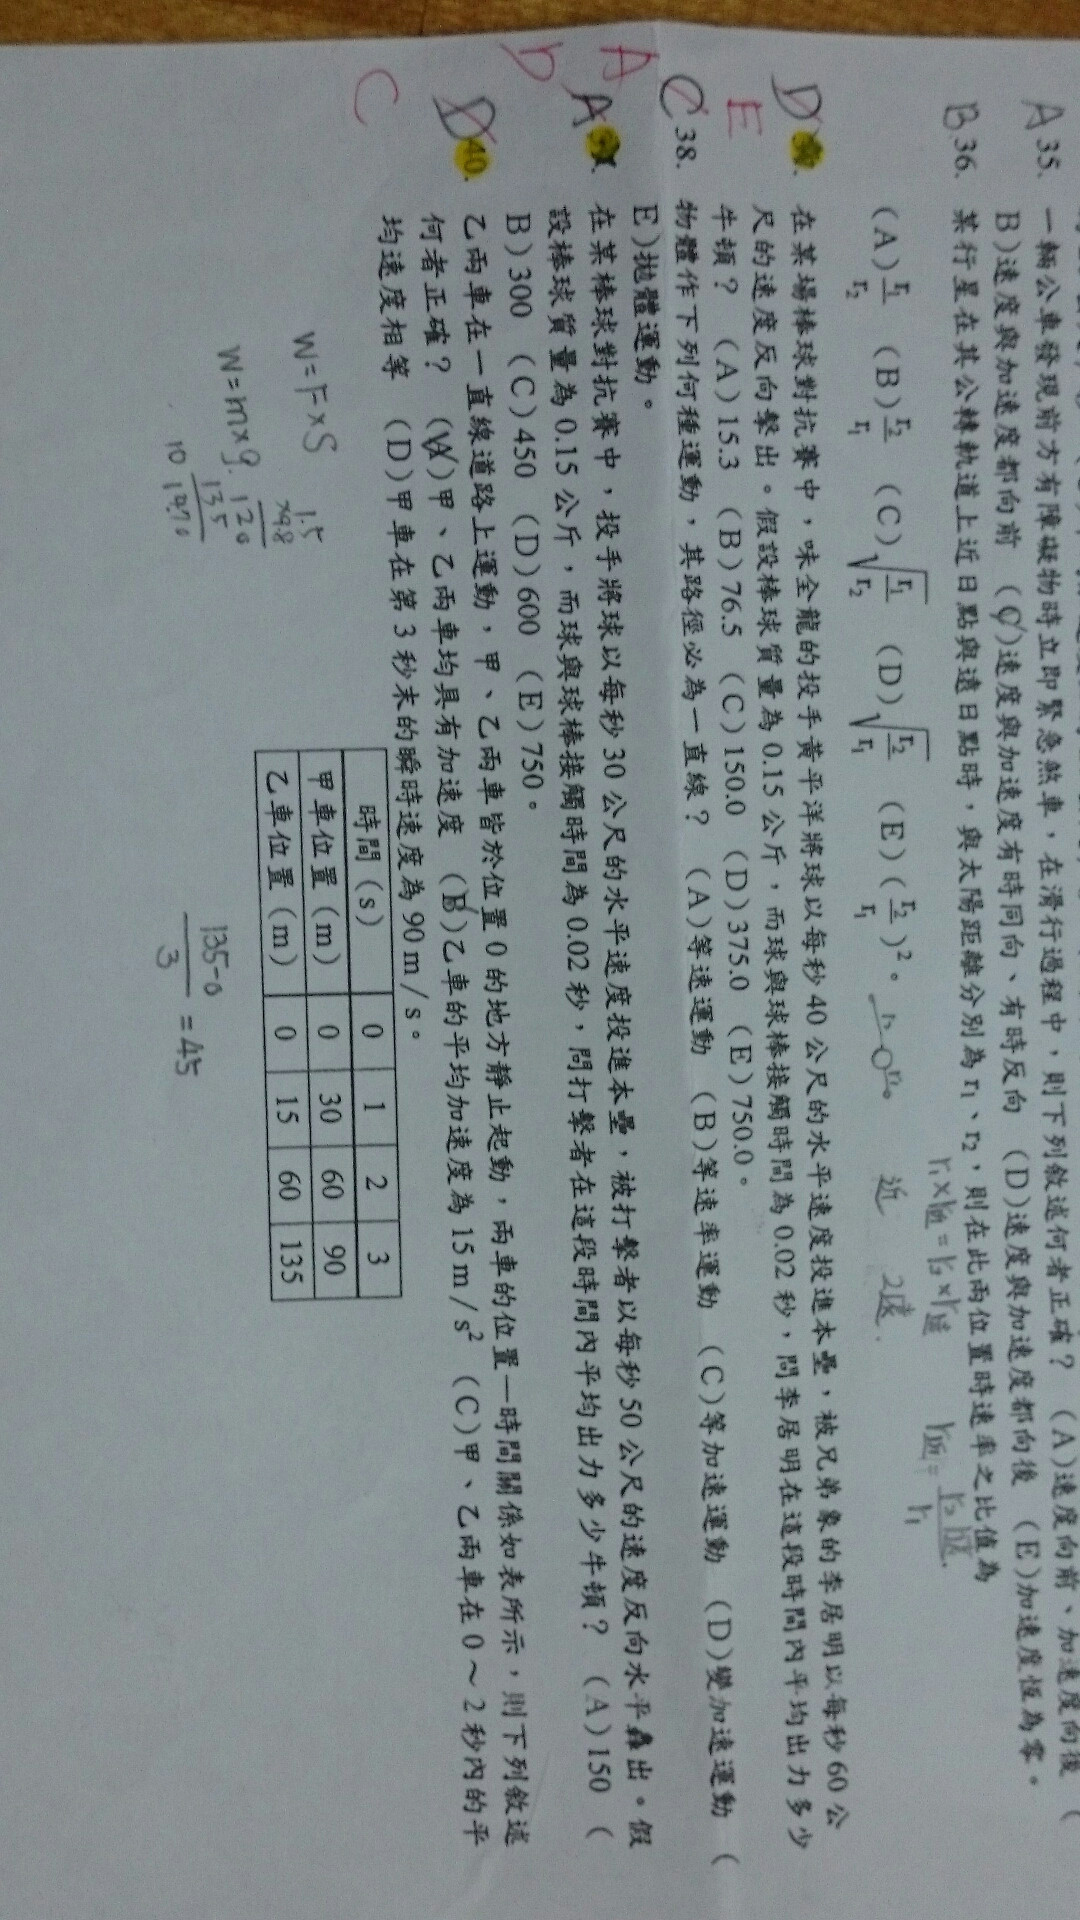 A 35. 一輛公車發現前方有障礙物時立即緊急煞車，在滑行過程中，則下列敘述何者正確？ (A)速度向前、加速度向後 (
B)速度與加速度都向前 (C)速度與加速度有時同向、有時反向 (D)速度與加速度都向後 (E)加速度恆為零。
B 36. 某行星在其公轉軌道上近日點與遠日點時，與太陽距離分別為 r₁、r₂，則在此兩位置時速率之比值為
(A) r₁/r₂ (B) r₂/r₁ (C) √(r₁/r₂) (D) √(r₂/r₁) (E) (r₂/r₁)²。
近 遠
D
E
在某場棒球對抗賽中，味全龍的投手黃平洋將球以每秒 40 公尺的水平速度投進本壘，被兄弟象的李居明以每秒 60 公
尺的速度反向擊出。假設棒球質量為 0.15 公斤，而球與球棒接觸時間為 0.02 秒，問李居明在這段時間內平均出力多少
牛頓？ (A)15.3 (B)76.5 (C)150.0 (D)375.0 (E)750.0。
C 38. 物體作下列何種運動，其路徑必為一直線？ (A)等速運動 (B)等速率運動 (C)等加速運動 (D)變加速運動 (
A
E)拋體運動。
A
D
在某棒球對抗賽中，投手將球以每秒 30 公尺的水平速度投進本壘，被打擊者以每秒 50 公尺的速度反向水平轟出。假
設棒球質量為 0.15 公斤，而球與球棒接觸時間為 0.02 秒，問打擊者在這段時間內平均出力多少牛頓？ (A)150 (
B)300 (C)450 (D)600 (E)750。
D 40. 乙兩車在一直線道路上運動，甲、乙兩車皆於位置 0 的地方靜止起動，兩車的位置－時間關係如表所示，則下列敘述
C
何者正確？ (A)甲、乙兩車均具有加速度 (B)乙車的平均加速度為 15 m/s² (C)甲、乙兩車在 0～2 秒內的平
均速度相等 (D)甲車在第 3 秒末的瞬時速度為 90 m/s。
時間(s) 0 1 2 3
甲車位置(m) 0 30 60 90
乙車位置(m) 0 15 60 135
W=F×S
W=m×g.
1.5
×9.8
120
135
135-0
3
=45